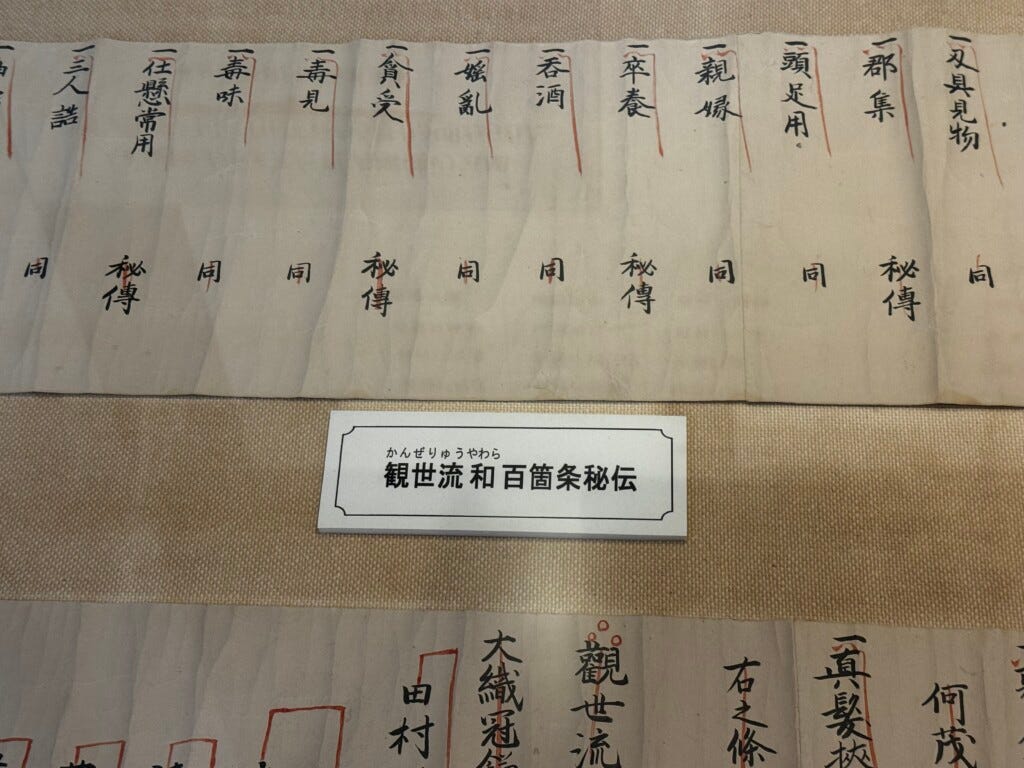 一刄具見物 同
一郡集 秘傳
一頭足用 同
一親縁 同
一卒養 秘傳
一呑酒 同
一婬亂 同
一貪受 秘傳
一毒見 同
一毒味 同
一仕懸常用 秘傳
一三人詰 同
かんぜりゅうやわら
観世流 和 百箇条秘伝
何茂
一真髪挾
右之條
觀世流
大織冠
田村